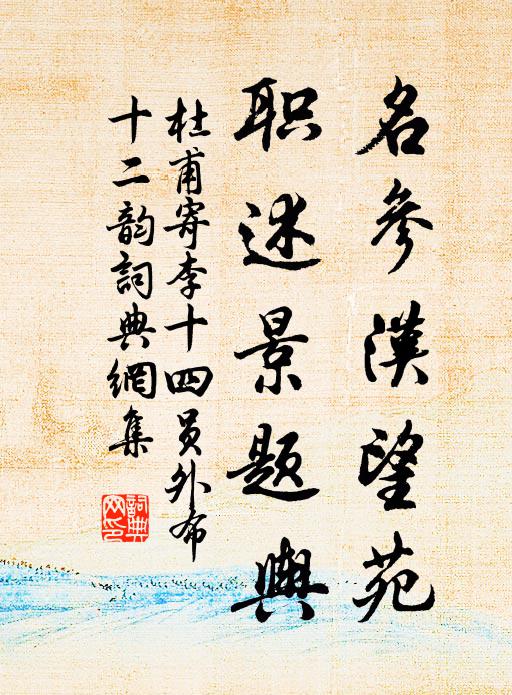 名參漢望苑
职述景题輿
杜甫寄李十四员外布
十二韵詞典網集
詞典網印